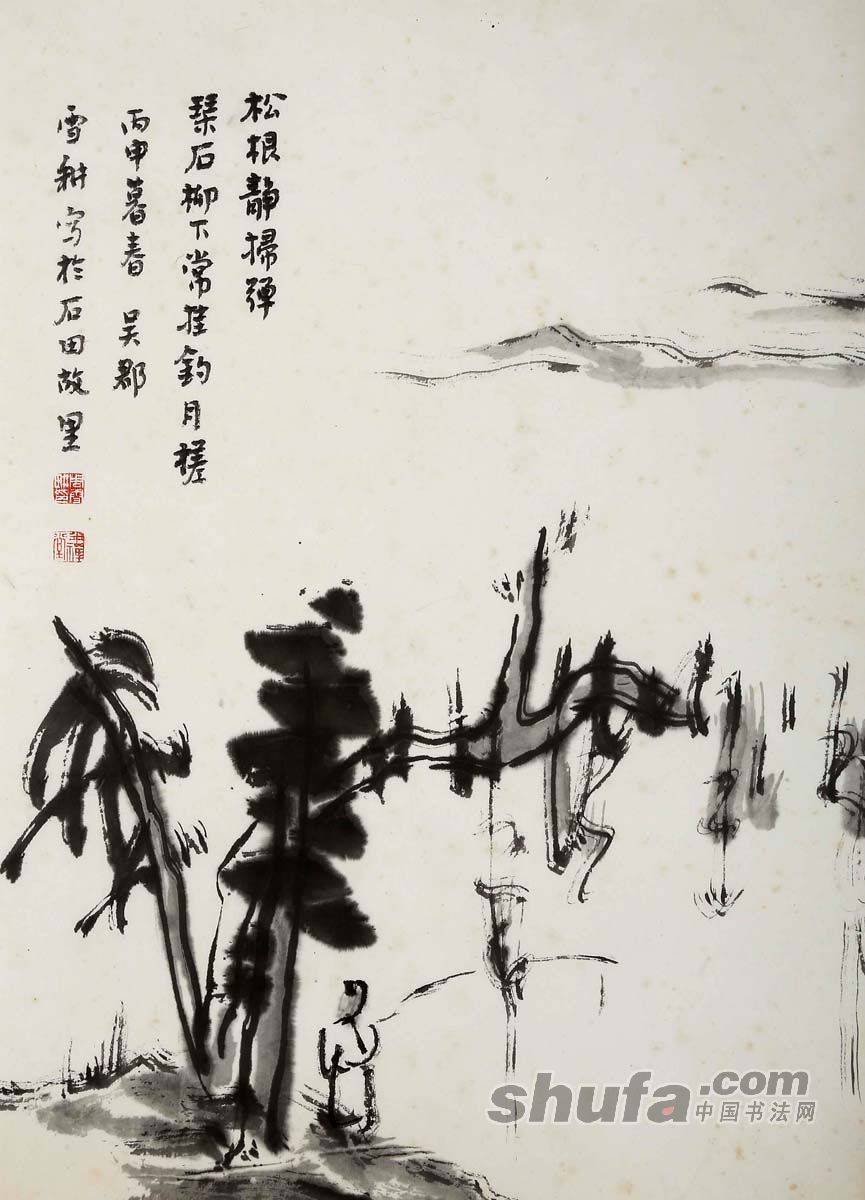 松根静掃彈
琹石柳下常挂釣月槎
丙申暮春 吴郡
雪耕写於石田故里
shufa.com
中国书法网